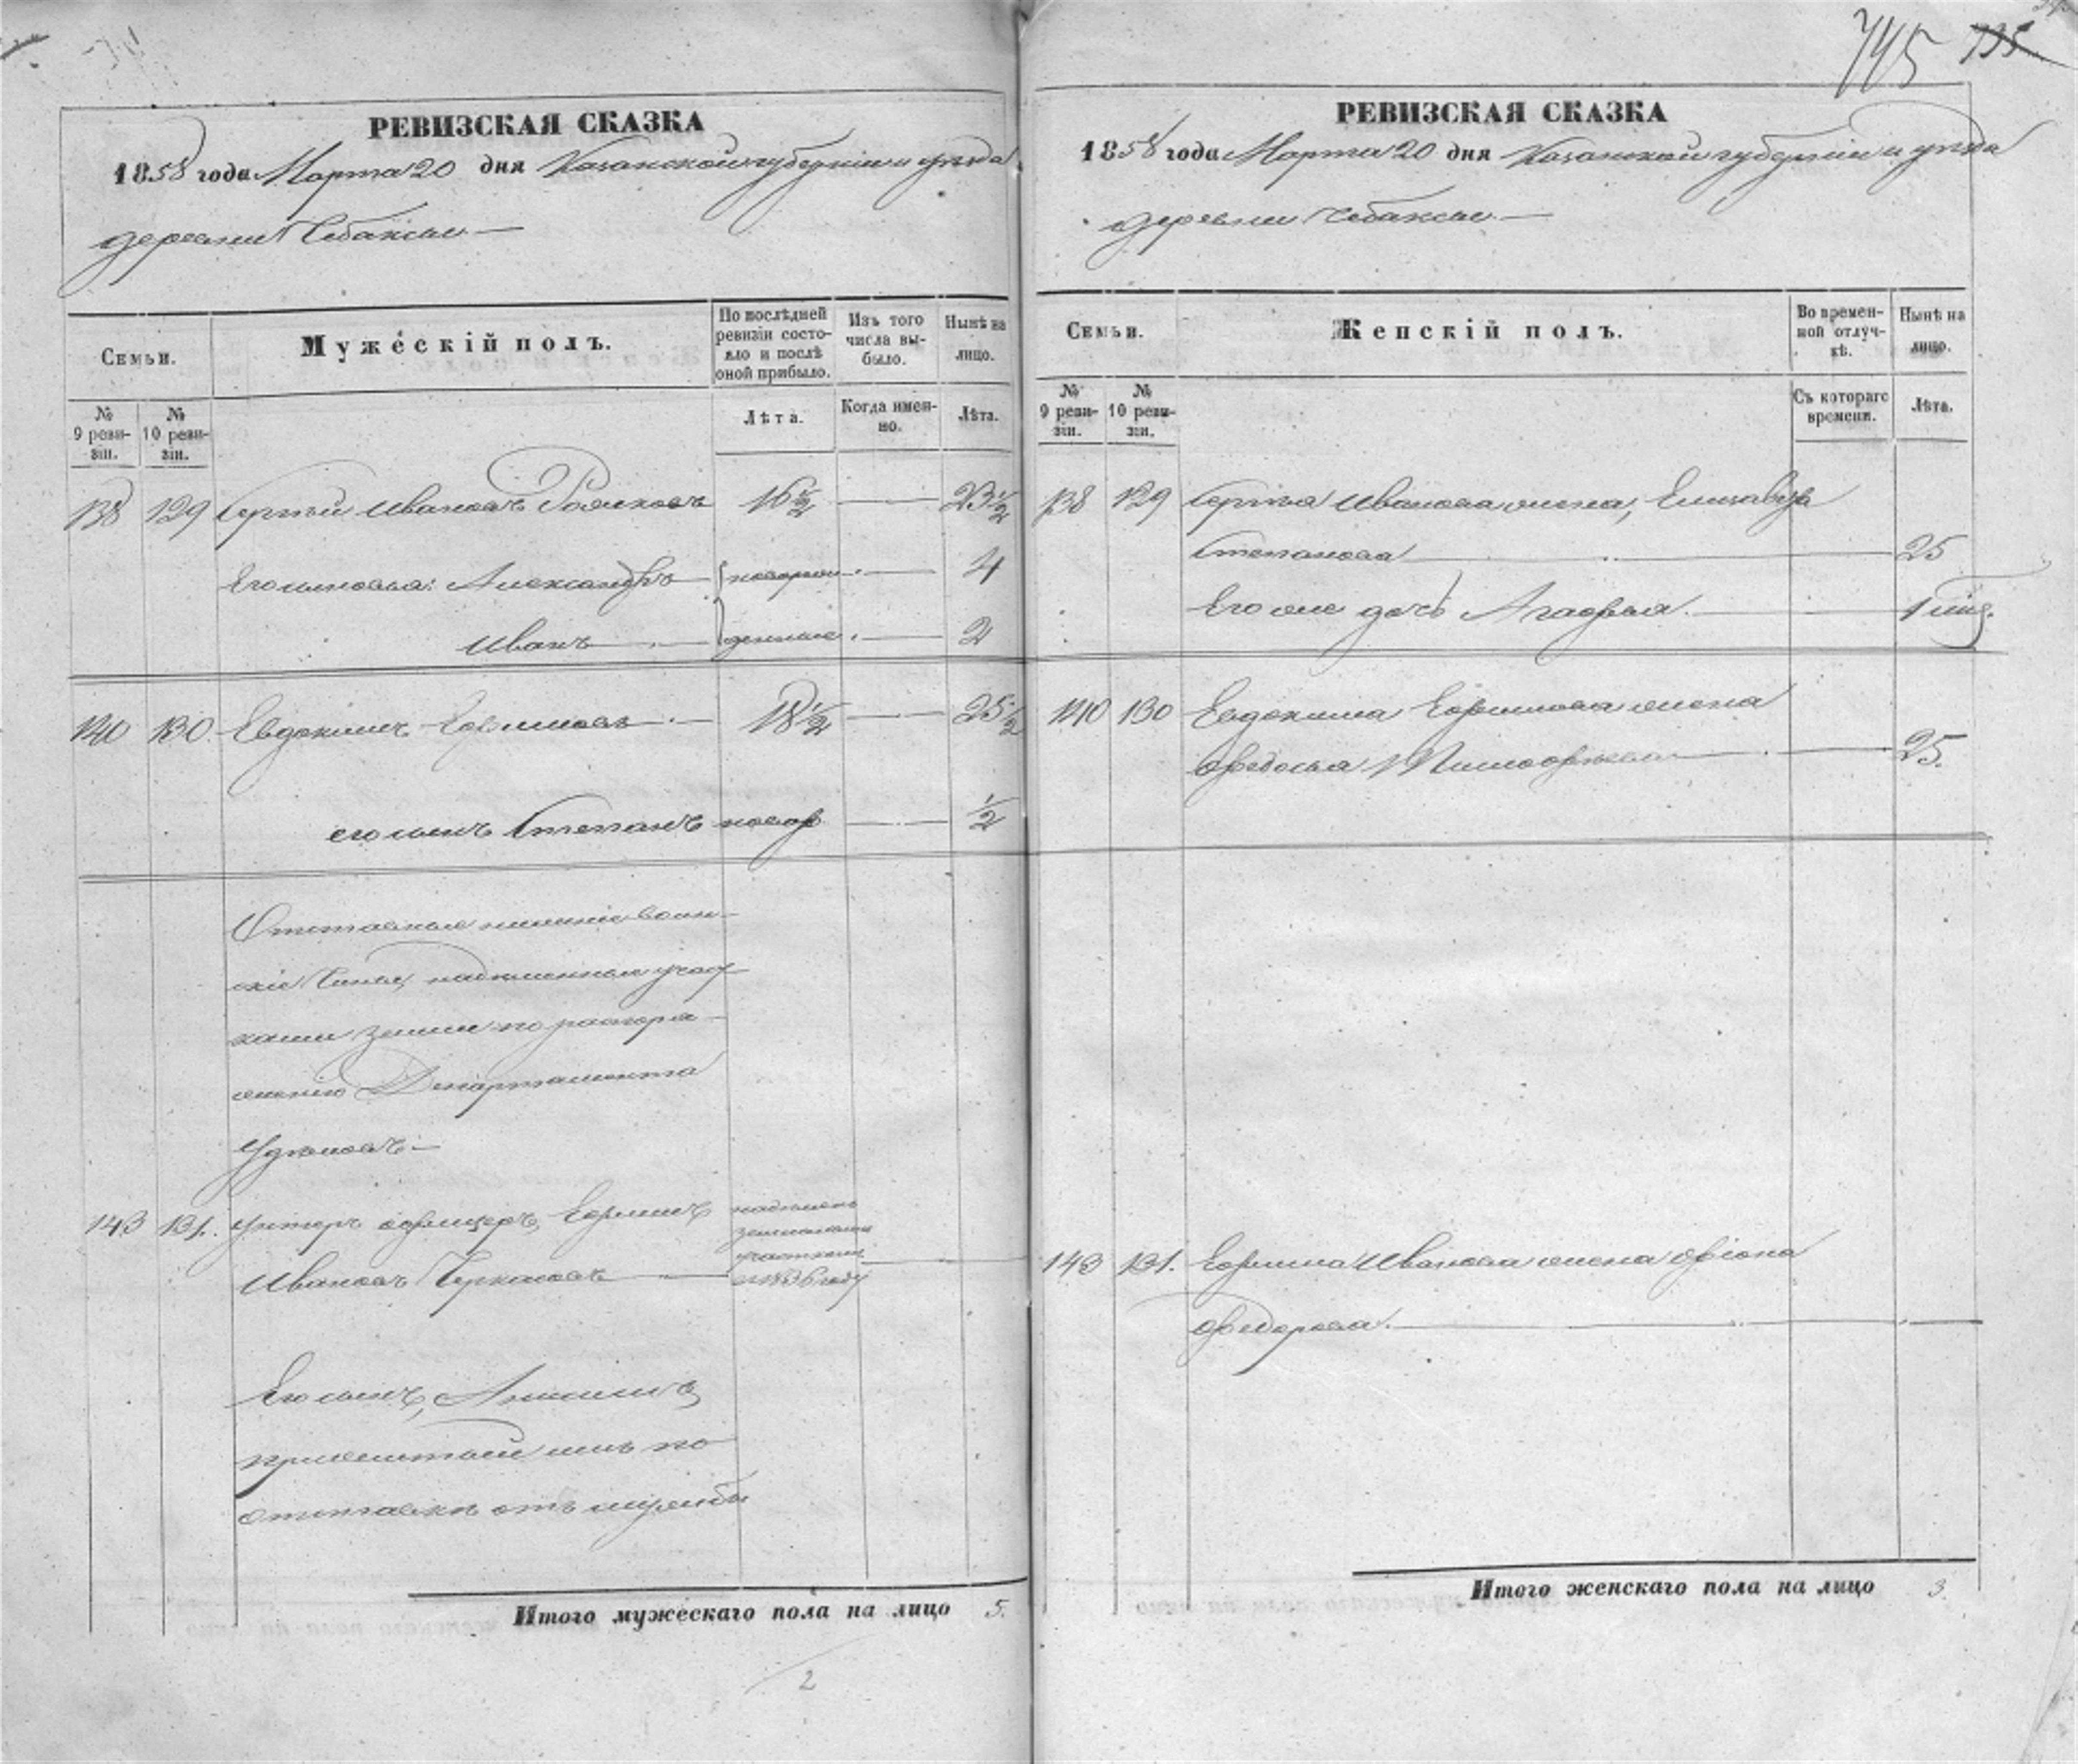 745 735
РЕВИЗСКАЯ СКАЗКА
1858 года Марта 20 дня Казанской губерніи и уѣзда
деревни Чебаксы —
Семьи.
Мужескій полъ.
По послѣдней ревизіи состояло и послѣ оной прибыло.
Изъ того числа выбыло.
Нынѣ на лицо.
№ 9 ревизіи.
№ 10 ревизіи.
Лѣта.
Когда именно.
Лѣта.
138 129 Сергѣй Ивановъ 16 ½ — 23 ½
Его сыновья: Александръ — новорож — 4
Иванъ — денные — 2
140 130 Евдокимъ Ефимовъ — 18 ½ — 25 ½
его сынъ Степанъ новор — ½
Отставные нижніе воин-
скіе чины, надѣленные участ
ками земли по распоря-
женію Департамента
Удѣловъ —
143 131. Унтеръ офицеръ, Ефимъ
Ивановъ —
надѣленъ
земельнымъ
участкомъ
въ 1836 году
Его сынъ,
прижитый имъ по
отставкѣ отъ службы
Итого мужескаго пола на лицо 5.
2
РЕВИЗСКАЯ СКАЗКА
1858 года Марта 20 дня Казанской губерніи и уѣзда
деревни Чебаксы —
Семьи.
Женскій полъ.
Во временной отлучкѣ.
Нынѣ на лицо.
№ 9 ревизіи.
№ 10 ревизіи.
Съ котораго времени.
Лѣта.
138 129 Сергѣя Иванова жена, Елизавета
Степанова — 25
Его же дочь Агафья. — 1 мѣс.
140 130 Евдокима Ефимова жена
Федосья Тимофѣева — 25.
143 131. Ефима Иванова жена Фіона
Федорова. —
Итого женскаго пола на лицо 3.